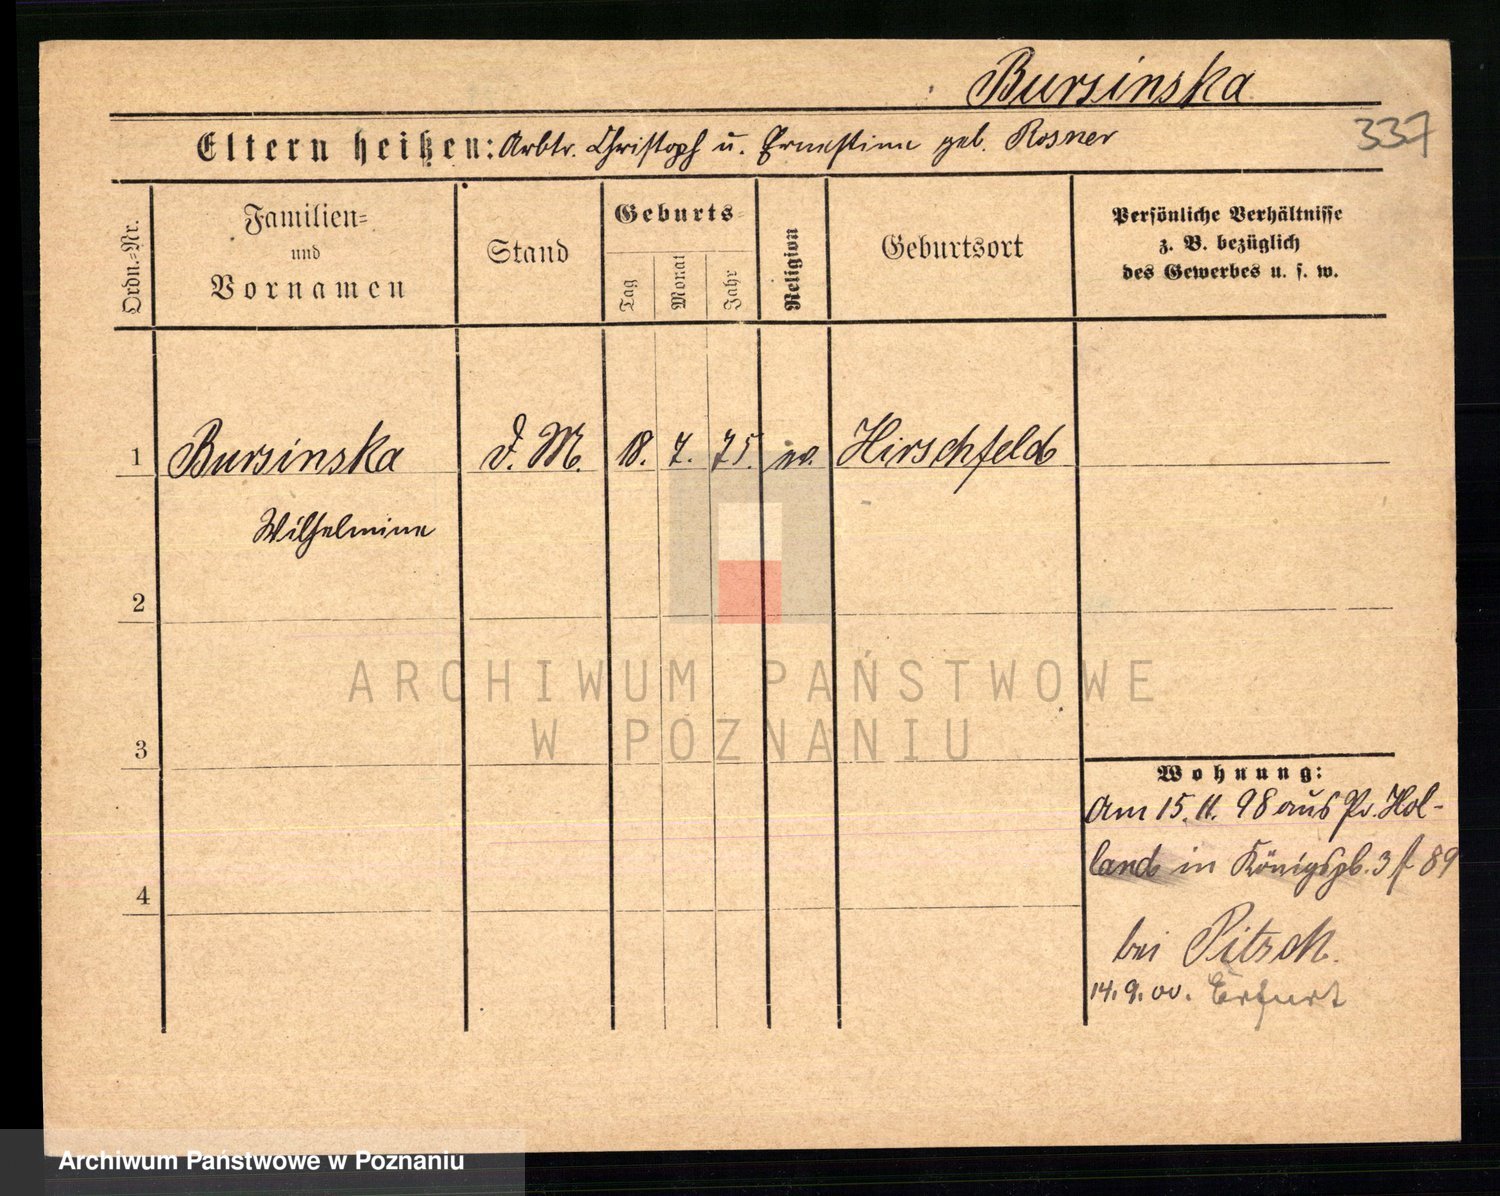 Bursinska
337
Eltern heißen: Arbtr. Christoph u. Ernestine geb. Rosner
Ordn.-Nr.
Familien-
und
Vornamen
Stand
Geburts-
Tag
Monat
Jahr
Religion
Geburtsort
Persönliche Verhältnisse
z. B. bezüglich
des Gewerbes u. s. w.
1 Bursinska D. M. 18. 7. 75. ev. Hirschfeld
Wilhelmine
2
3
4
Wohnung:
Am 15. 11. 98 aus Pr. Hol-
land in Königspl. 3 89
bei Pitsch.
14. 9. 00. Erfurt
ARCHIWUM PAŃSTWOWE
W POZNANIU
Archiwum Państwowe w Poznaniu